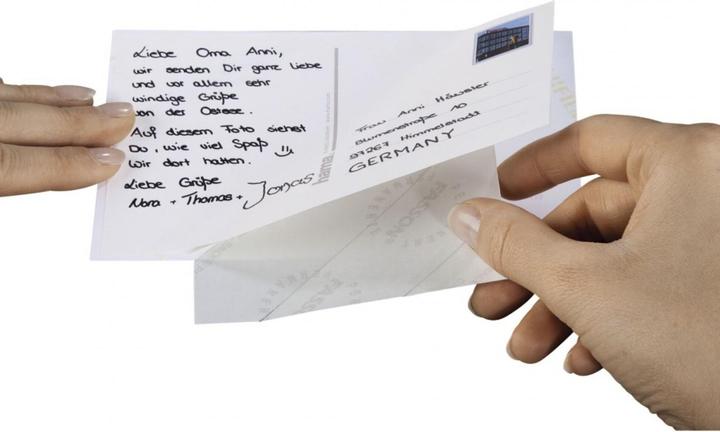 Liebe Oma Anni,
wir senden Dir ganz liebe
und vor allem sehr
windige Grüße
von der Ostsee.
Auf diesem Foto siehst
Du, wie viel Spaß
wir dort hatten.
Liebe Grüße
Nora + Thomas + Jonas
hama
Frau Anni Häusler
Blumenstraße 10
97267 Himmelstadt
GERMANY
FASSON